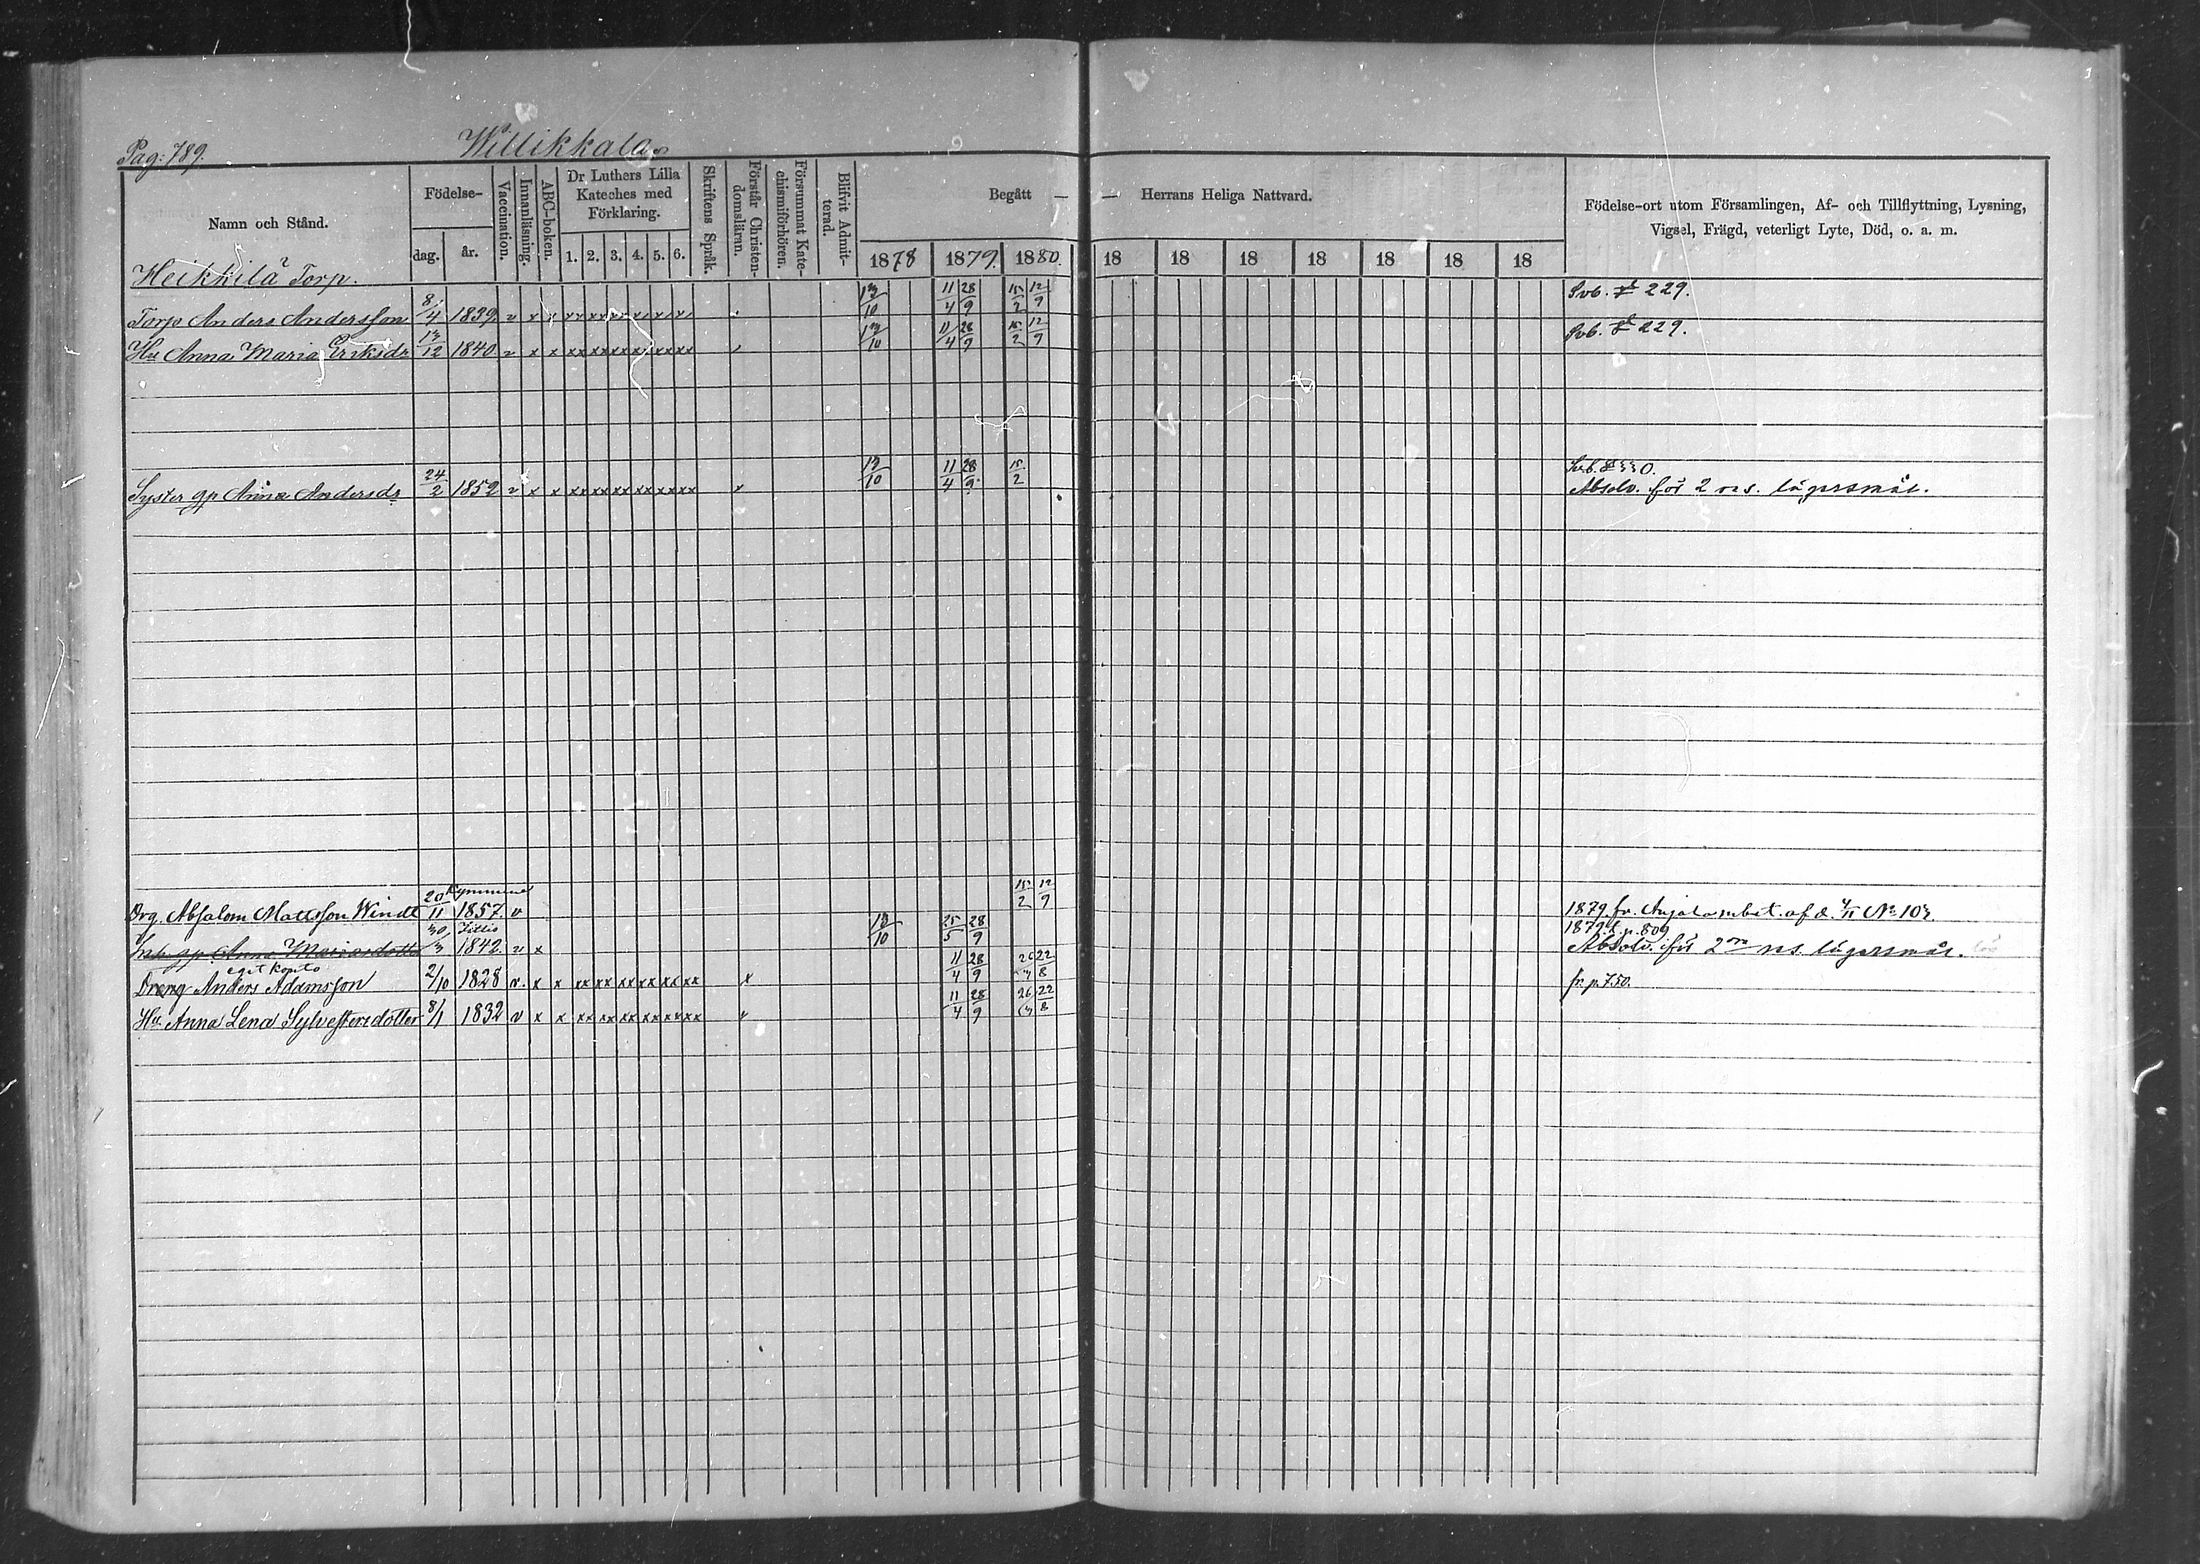 Pag: 789.
Willikkala
Namn och Stånd.
Födelse-
dag.
år.
Vaccination.
Innanläsning.
ABC-boken.
Dr Luthers Lilla
Kateches med
Förklaring.
1. 2. 3. 4. 5. 6.
Skriftens Språk.
Förstår Christen-
domsläran.
Försummat Kate-
chismiförhören.
Blifvit Admit-
terad.
Begått — — Herrans Heliga Nattvard.
1878 1879. 1880. 18 18 18 18 18 18 18
Födelse-ort utom Församlingen, Af- och Tillflyttning, Lysning,
Vigsel, Frägd, veterligt Lyte, Död, o. a. m.
Heikkilä Torp.
Torp Anders Andersson 8/4 1839 v x x xx xx xx xx xx xx 13/10 11/4 28/9 15/2 12/9 229.
Hu Anna Maria Eriksdr 13/12 1840 v x x xx xx xx xx xx xx 13/10 11/4 28/9 15/2 12/9 229.
Syster gp Anna Andersdr 24/2 1852 v x x xx xx xx xx xx xx x 13/10 11/4 28/9 15/2
Absolv. för 2 lägersmål.
Kymmene
Drg. Absalom Mattsson Windt 20/11 1857. v 15/2 12/9 1879. fr. af d. No 103.
Anna 30/3 1842. v x 13/10 25/5 28/9 1879. t. p. 809
Absolv. för 2 lägersmål.
eget konto
Dreng Anders Adamsson 2/10 1828 v. x x xx xx xx xx xx xx x 11/4 28/9 22/8 fr. p. 750.
Hu. Anna Lena Sylvestersdotter 8/1 1832 v x x xx xx xx xx xx xx v 11/4 28/9 22/8